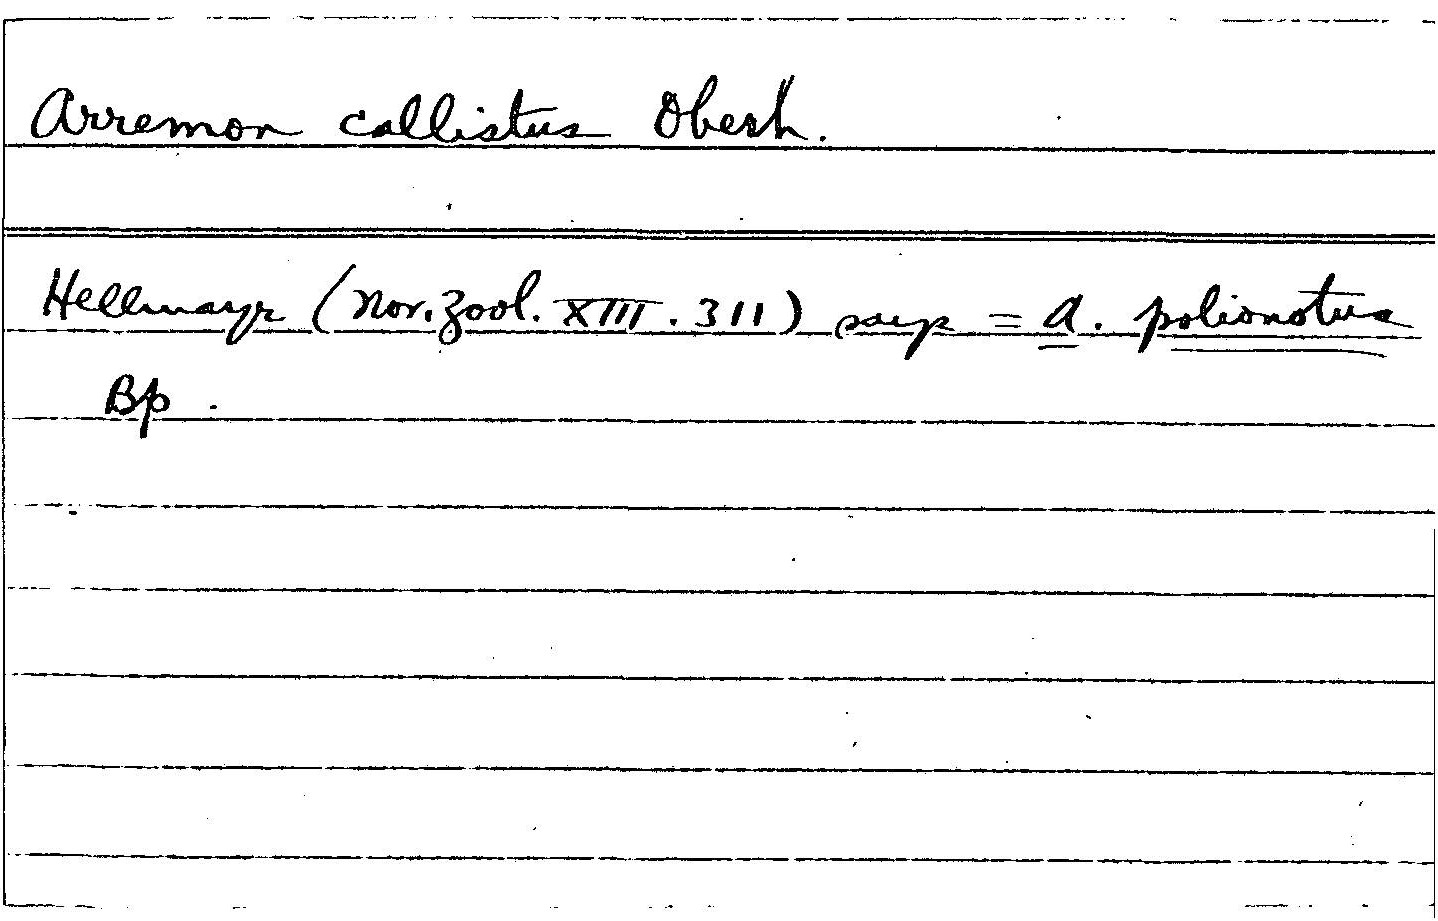 Arremon callistus Oberh.
Hellmayr (Nov. Zool. XIII. 311) says = A. polionotus
Bp.